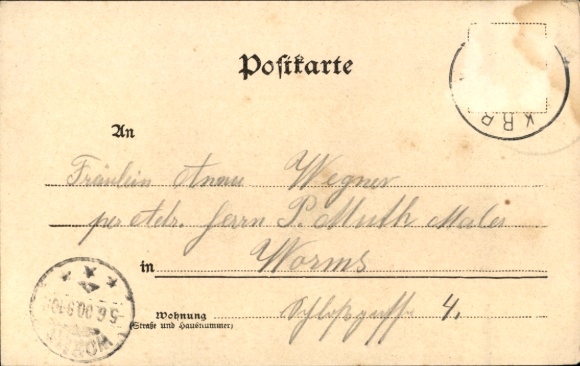 Postkarte
An
Fräulein Anna Wegner
per Adr. Herrn P. Muth Maler
in Worms
Wohnung
(Straße und Hausnummer)
Schloßgasse 4.
5.6.00.9-10
WORMS